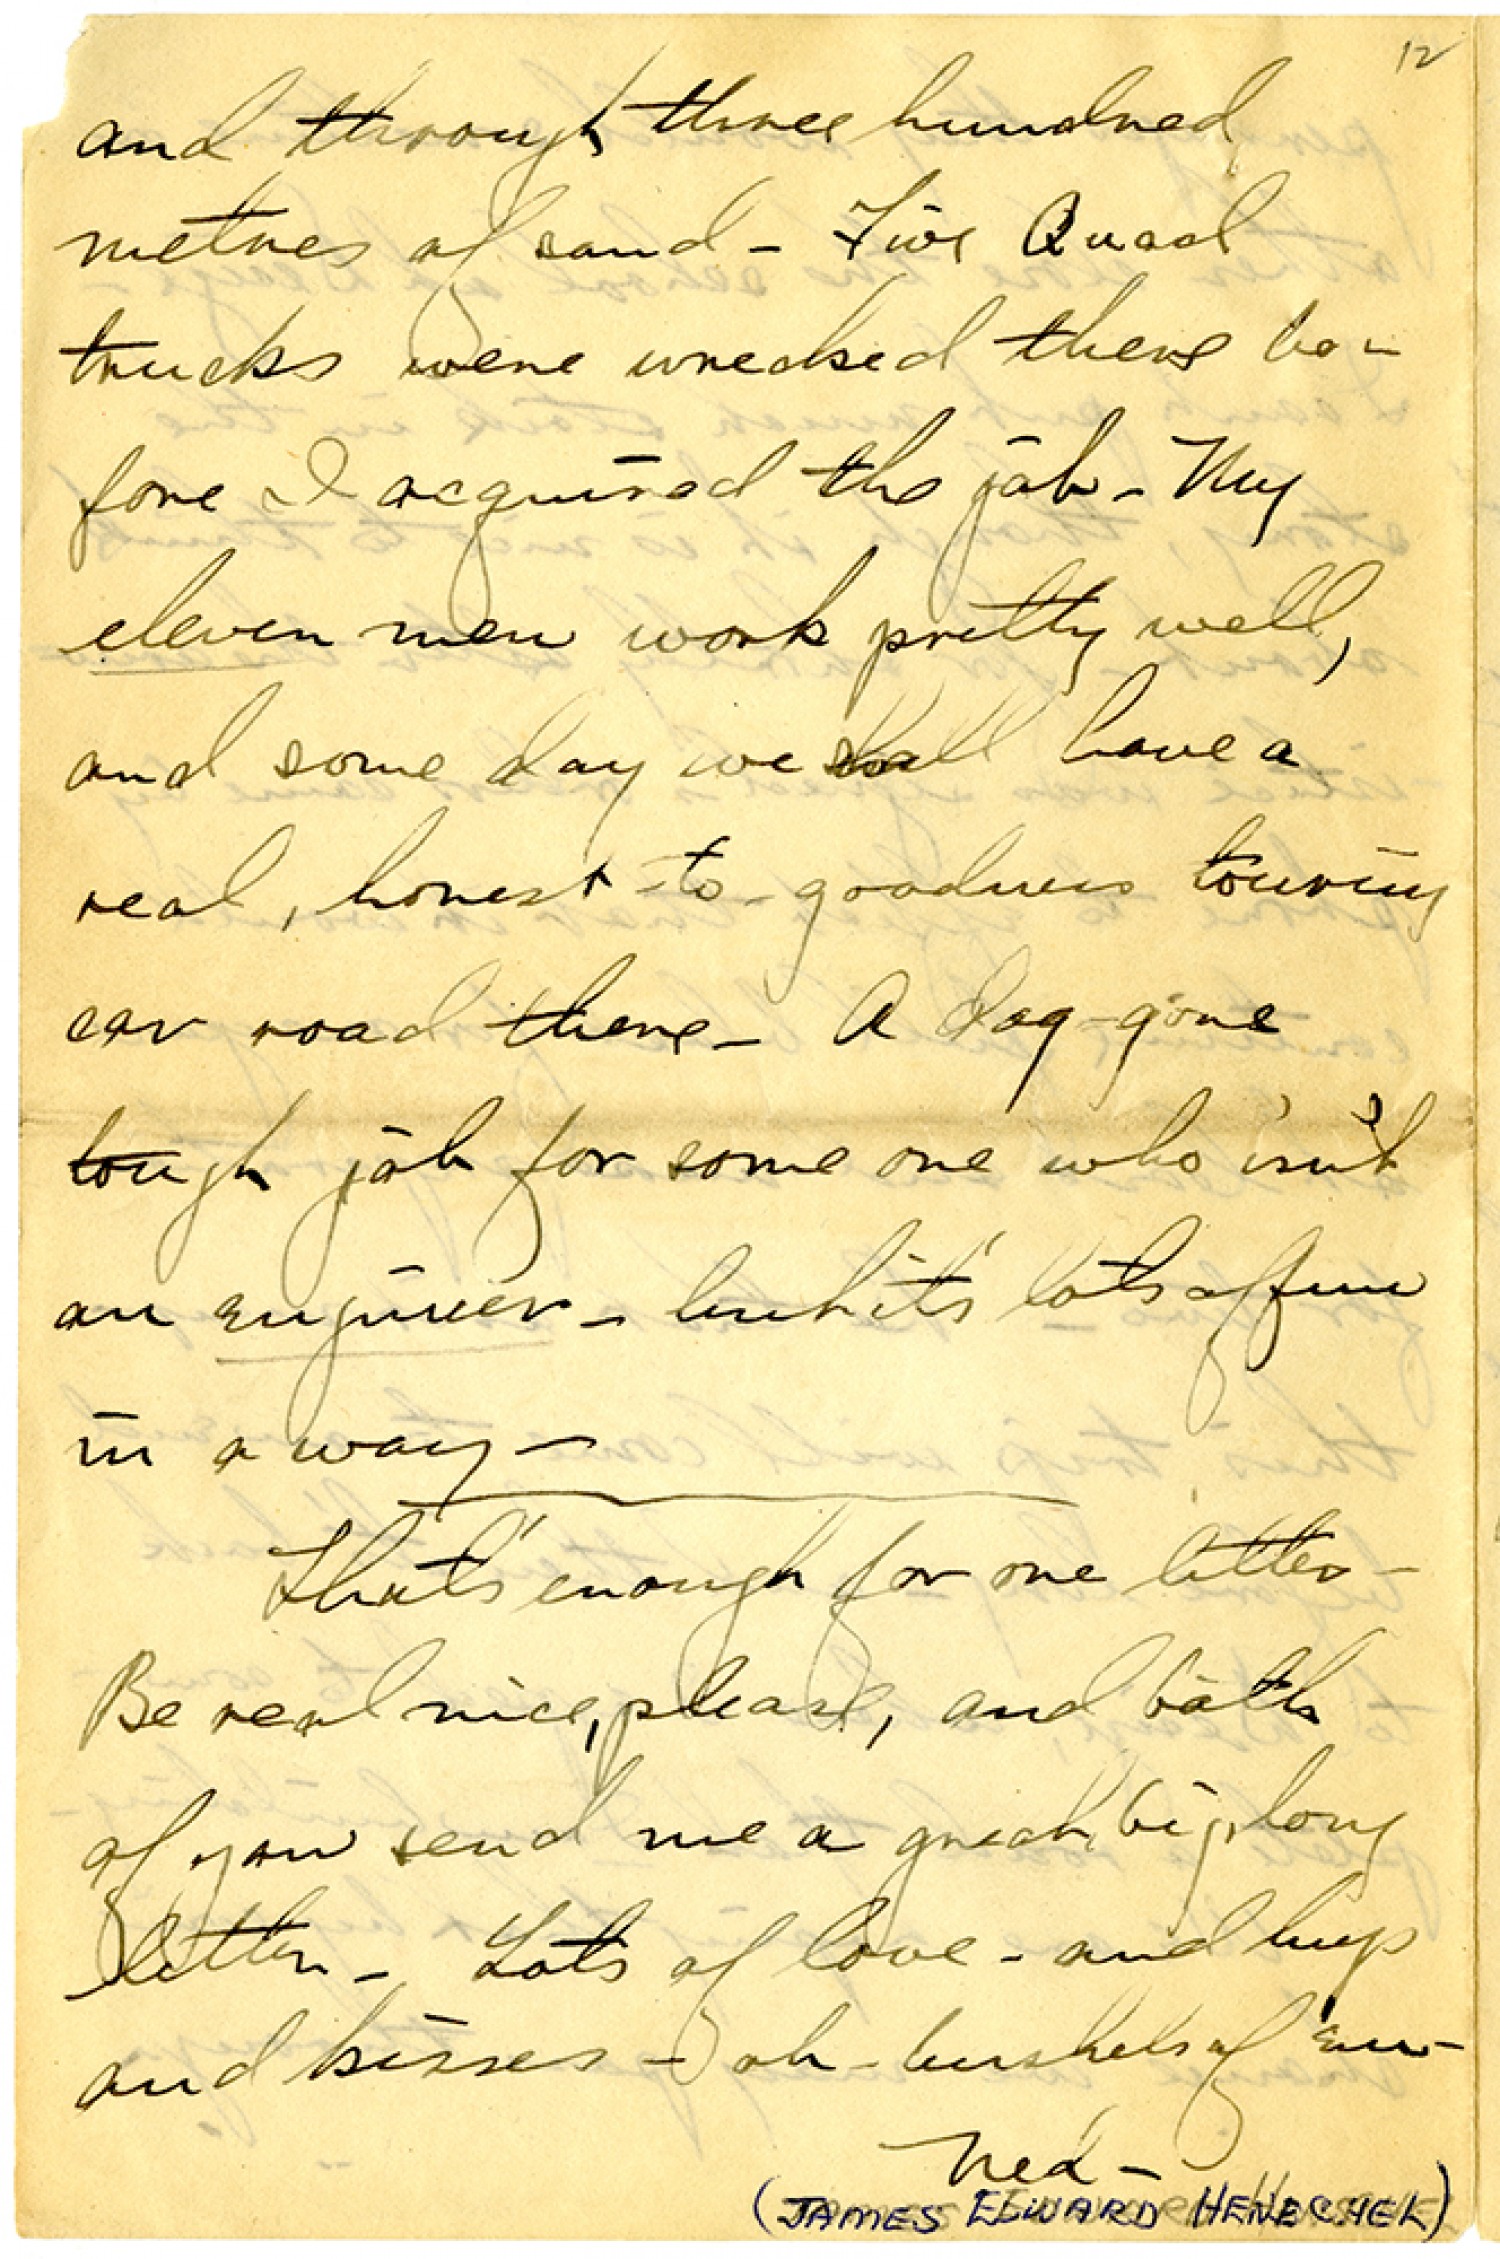 12
and through three hundred
metres of sand - Five Quad
trucks were wrecked there be-
fore I acquired the job - My
eleven men work pretty well,
and some day we shall have a
real, honest-to-goodness touring
car road there - A dog-gone
tough job for some one who isn't
an engineer - but it's lots of fun
in a way -
That's enough for one letter -
Be real nice, please, and both
of you send me a great, big, long
letter - Lots of love - and hugs
and kisses - oh - bushels of 'em -
Ned -
(JAMES EDWARD HENECHEL)